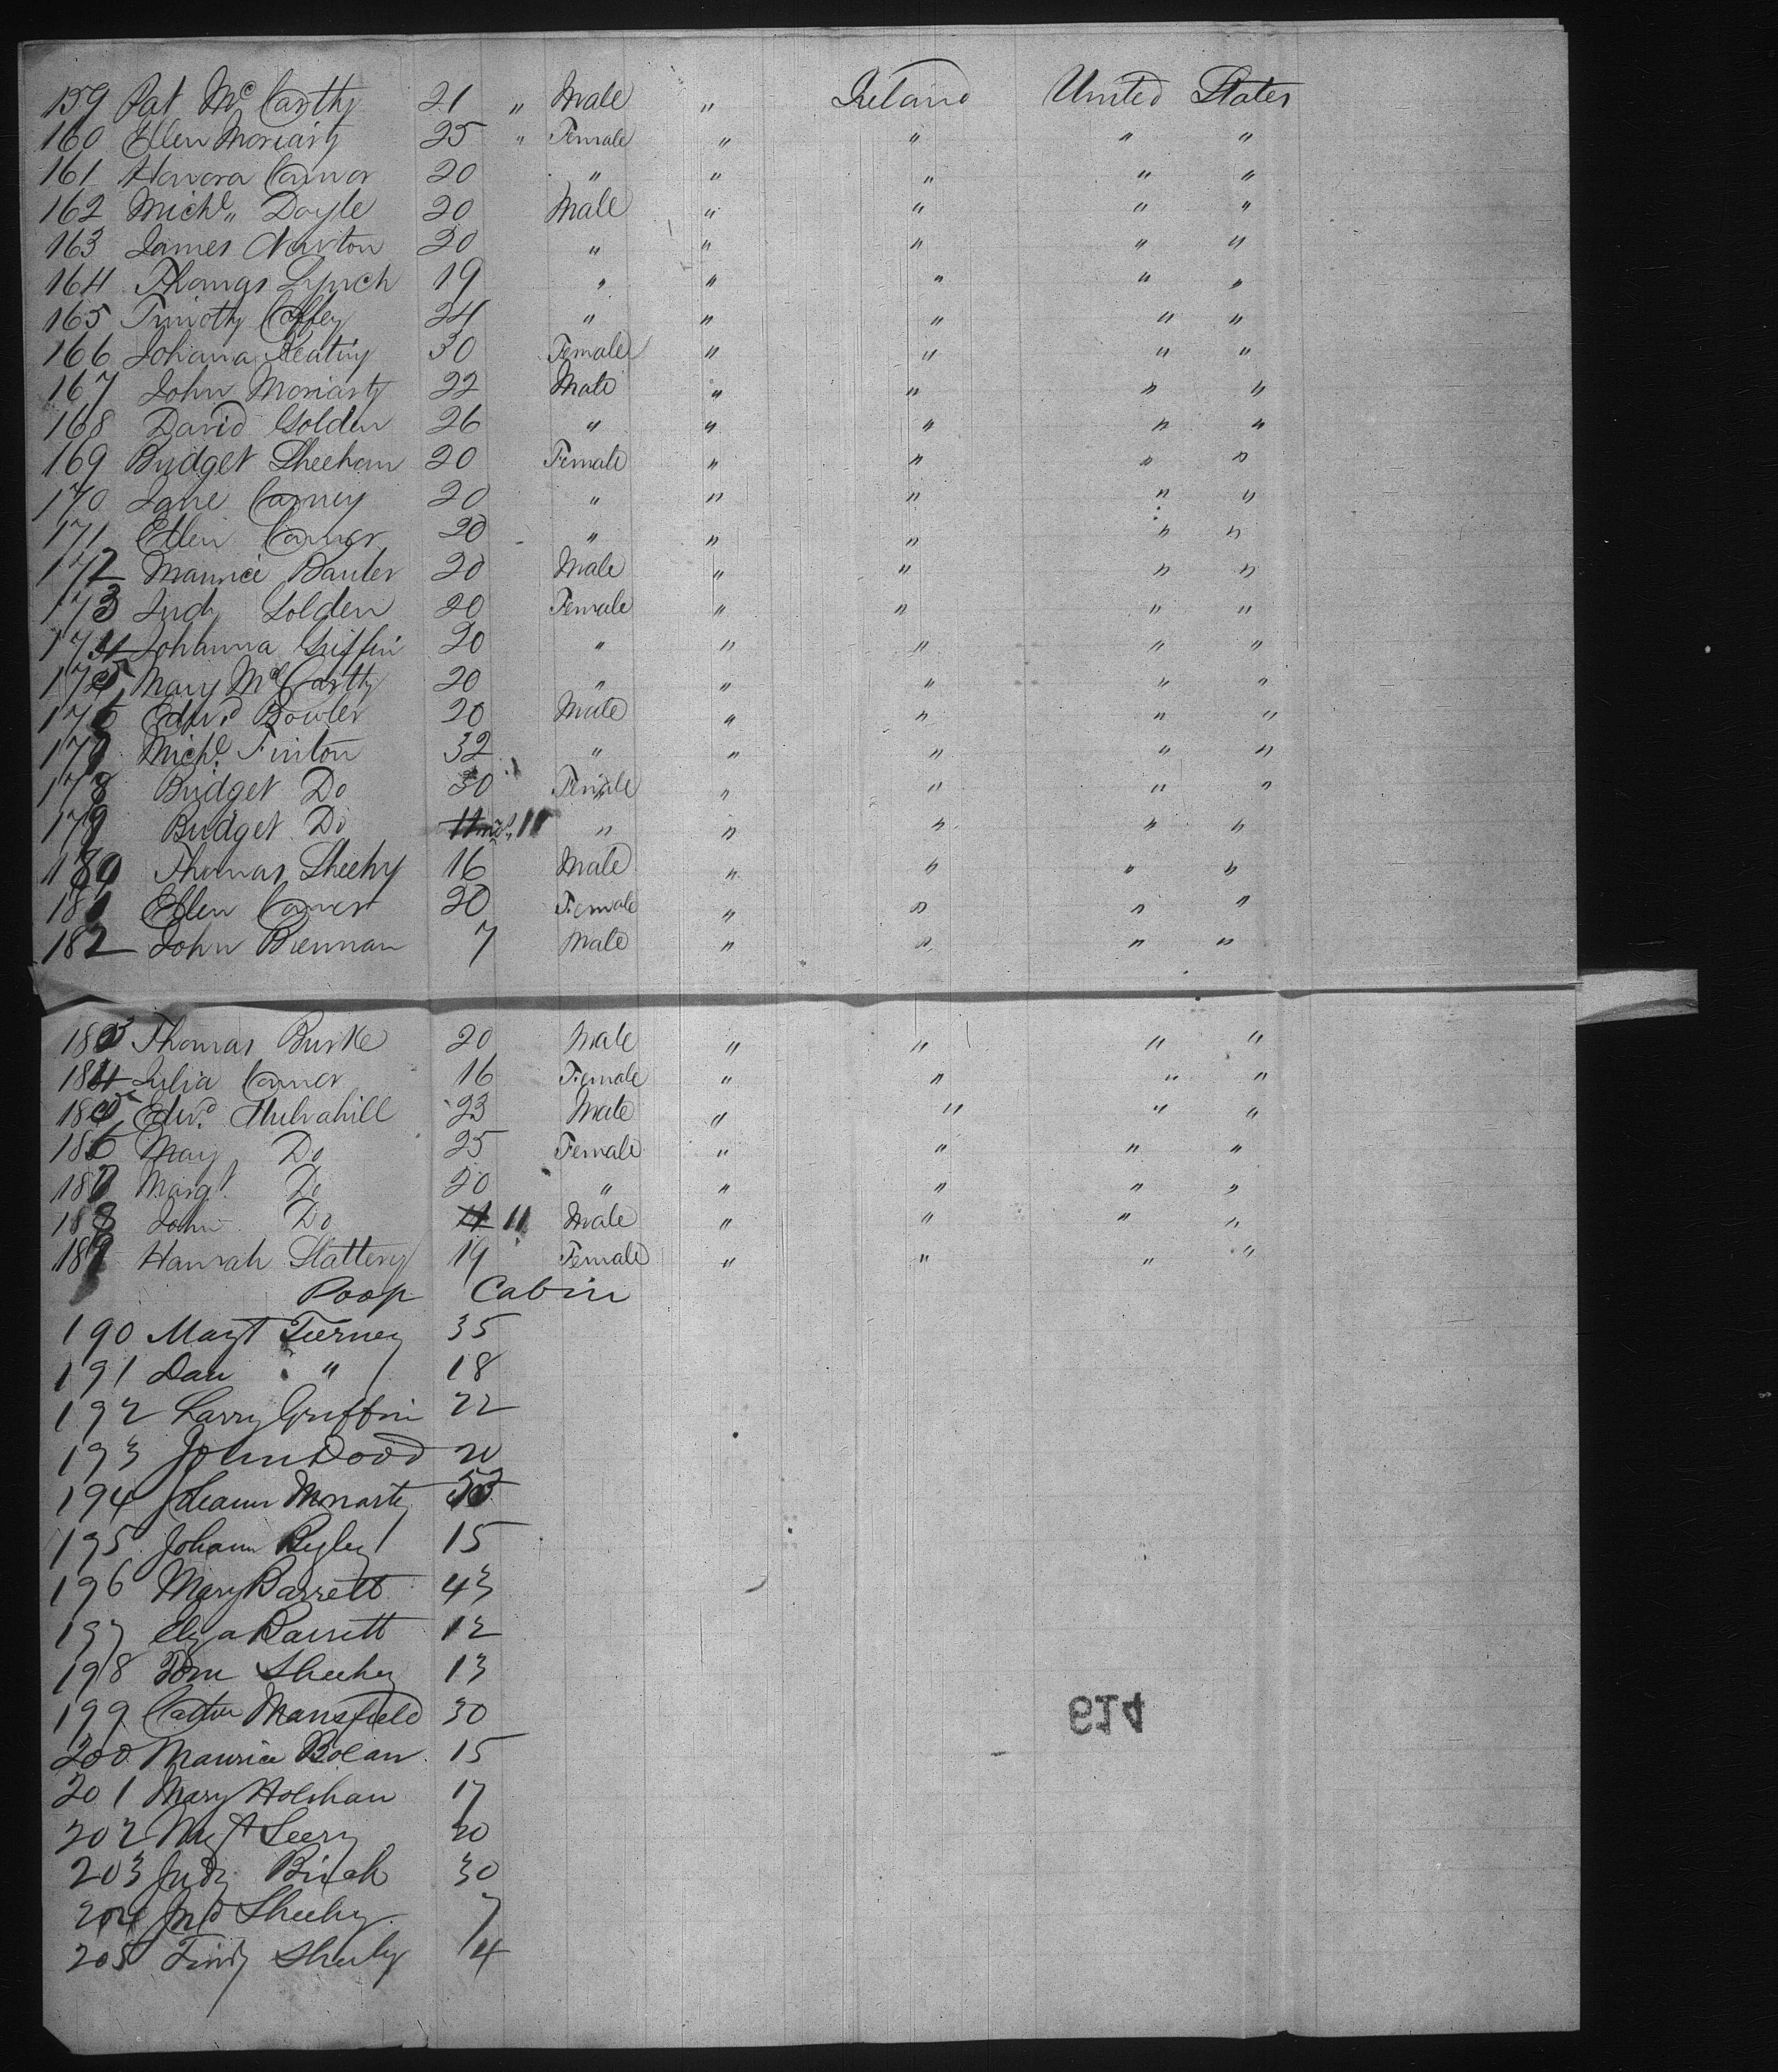 159 Pat McCarthy 21 " Male " Ireland United States
160 Ellen Moriarty 25 " Female " " " "
161 Honora Connor 20 " " " " "
162 Michl " Doyle 20 Male " " " "
163 James Navton 20 " " " " "
164 Thomas Lynch 19 " " " " "
165 Timothy Coffey 24 " " " " "
166 Johana Keating 30 Female " " " "
167 John Moriarty 22 Male " " " "
168 David Golden 26 " " " " "
169 Bridget Sheehan 20 Female " " " "
170 Jane Carney 20 " " " " "
171 Ellen Connor 20 " " " " "
172 Maurice Bauler 20 Male " " " "
173 Judy Golden 20 Female " " " "
174 Johanna Griffin 20 " " " " "
175 Mary McCarthy 20 " " " " "
176 Edwd Bowler 20 Male " " " "
177 Michl. Finton 32 " " " " "
178 Bridget Do 30 Female " " " "
179 Bridget Do 11 " " " " "
180 Thomas Sheehy 16 Male " " " "
181 Ellen Connor 20 Female " " " "
182 John Brennan 7 Male " " " "
183 Thomas Burke 20 Male " " " "
184 Julia Connor 16 Female " " " "
185 Edwd. Mulvahill 23 Male " " " "
186 Mary Do 25 Female " " " "
187 Margt. Do 20 " " " " "
188 John Do 11 Male " " " "
189 Hannah Slattery 19 Female " " " "
Poop Cabin
190 Margt Tierney 35
191 Dan " 18
192 Larry Griffin 22
193 John Dood 20
194 Moriarty
195 Johann Begley 15
196 Mary Barrett 43
197 Eliza Barrett 12
198 Tom Sheehy 13
199 Mansfield 30
200 Maurice Bolan 15
201 Mary Holihan 17
202 Mgt Leery 20
203 Judy 30
204 Jno Sheehy 7
205 Sheehy 4
614